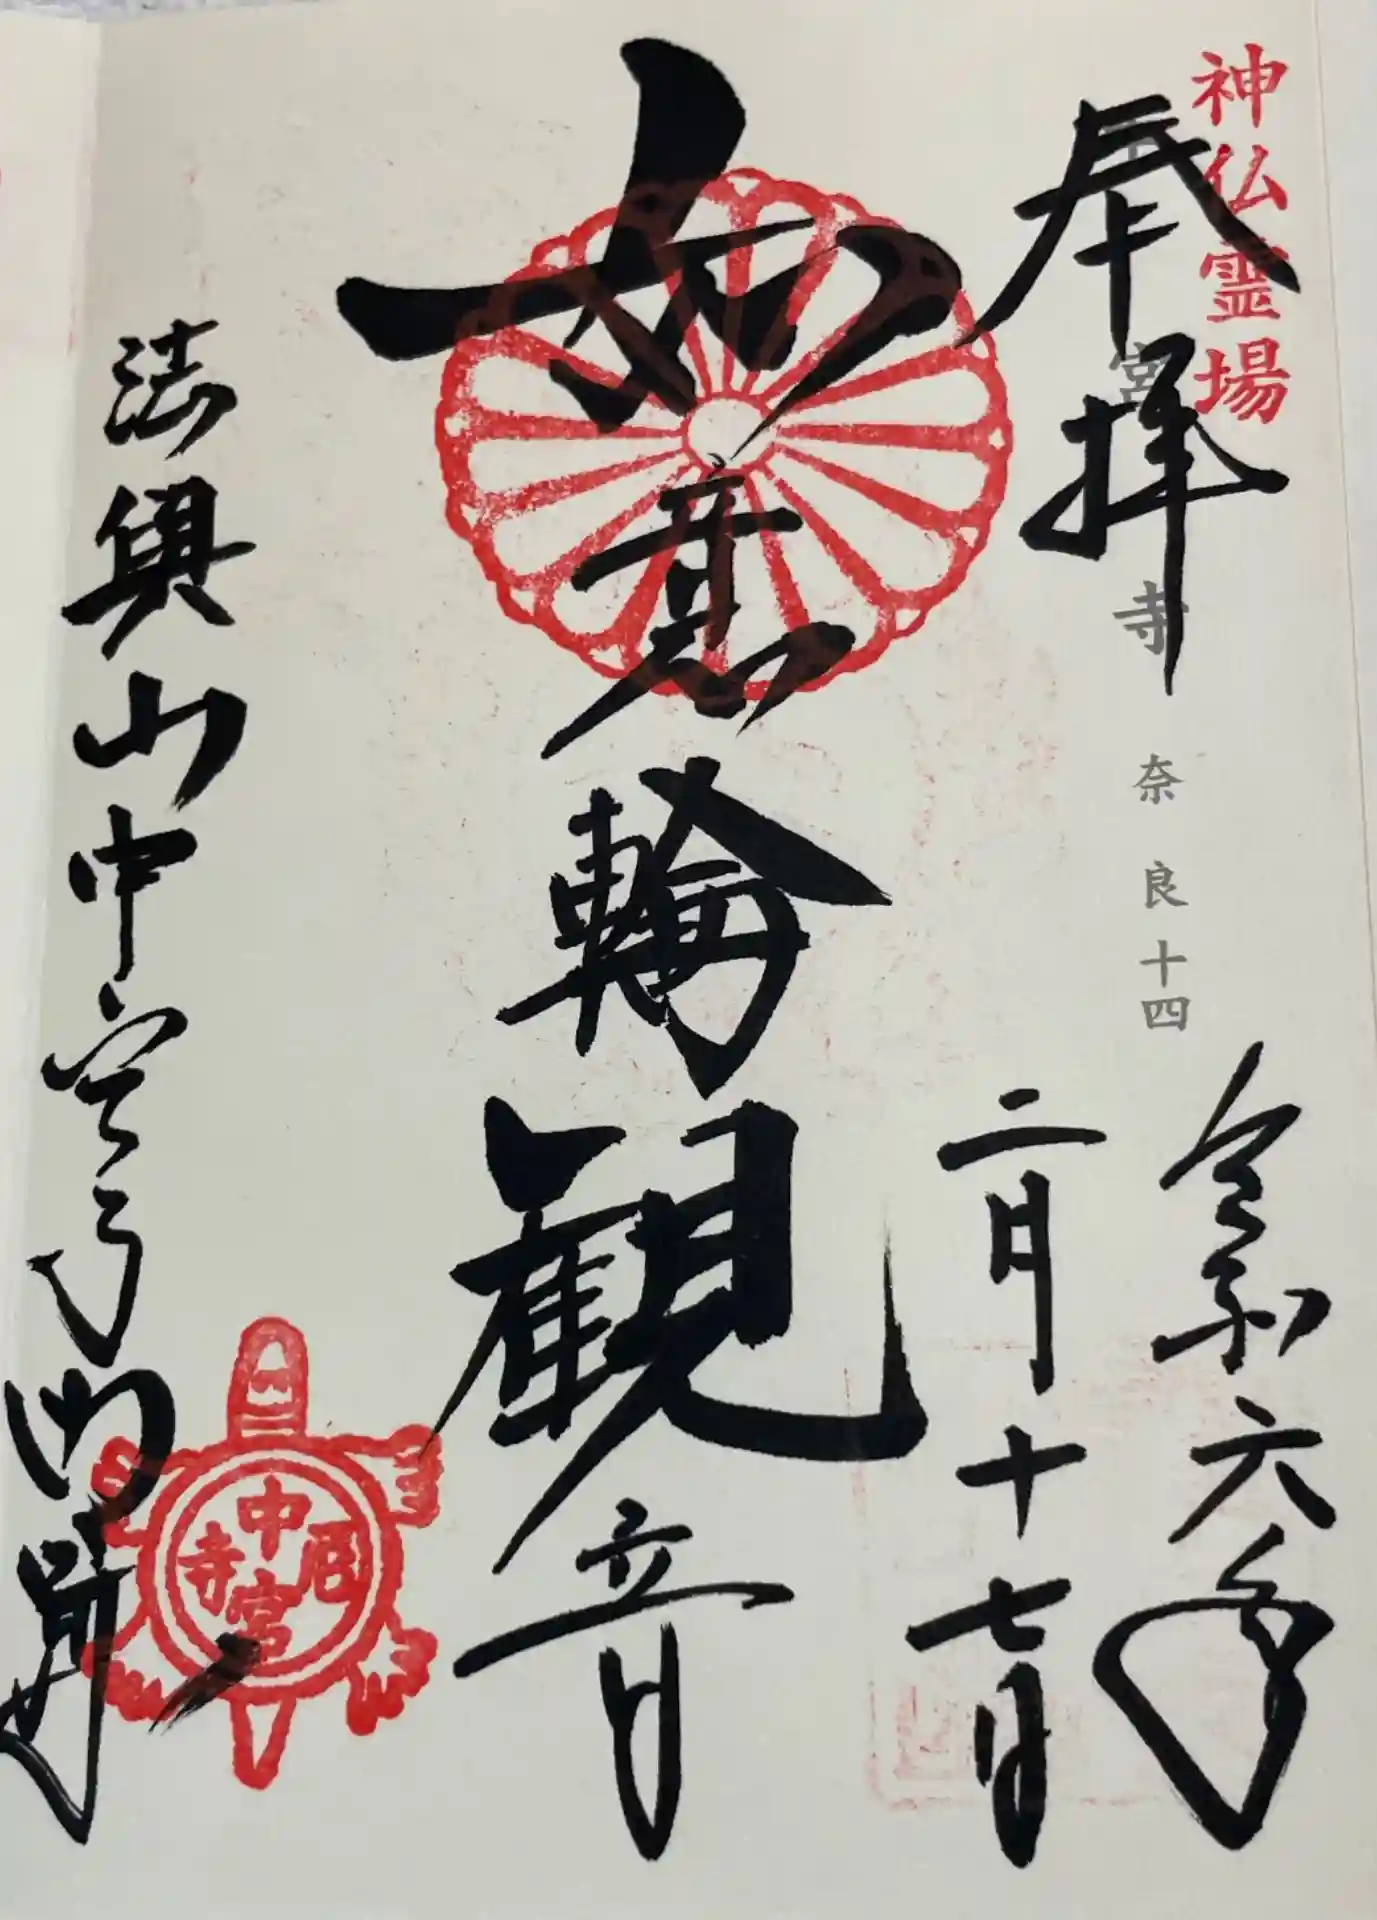 神仏霊場
奉拝
中宮寺 奈良十四
令和六年
二月十七日
如意輪観音
法興山中宮寺門跡
中宮寺